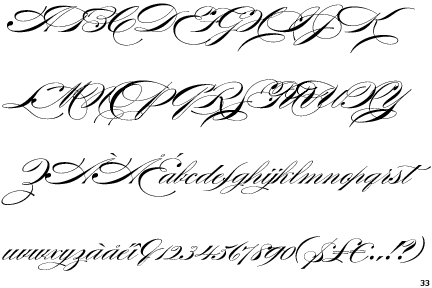 ABCDEFGHIJK
LMNOPQRSTUVWXY
ZÀÅÉabcdefghijklmnopqrst
uvwxyzàåéîõ1234567890($£€.,!?)
33